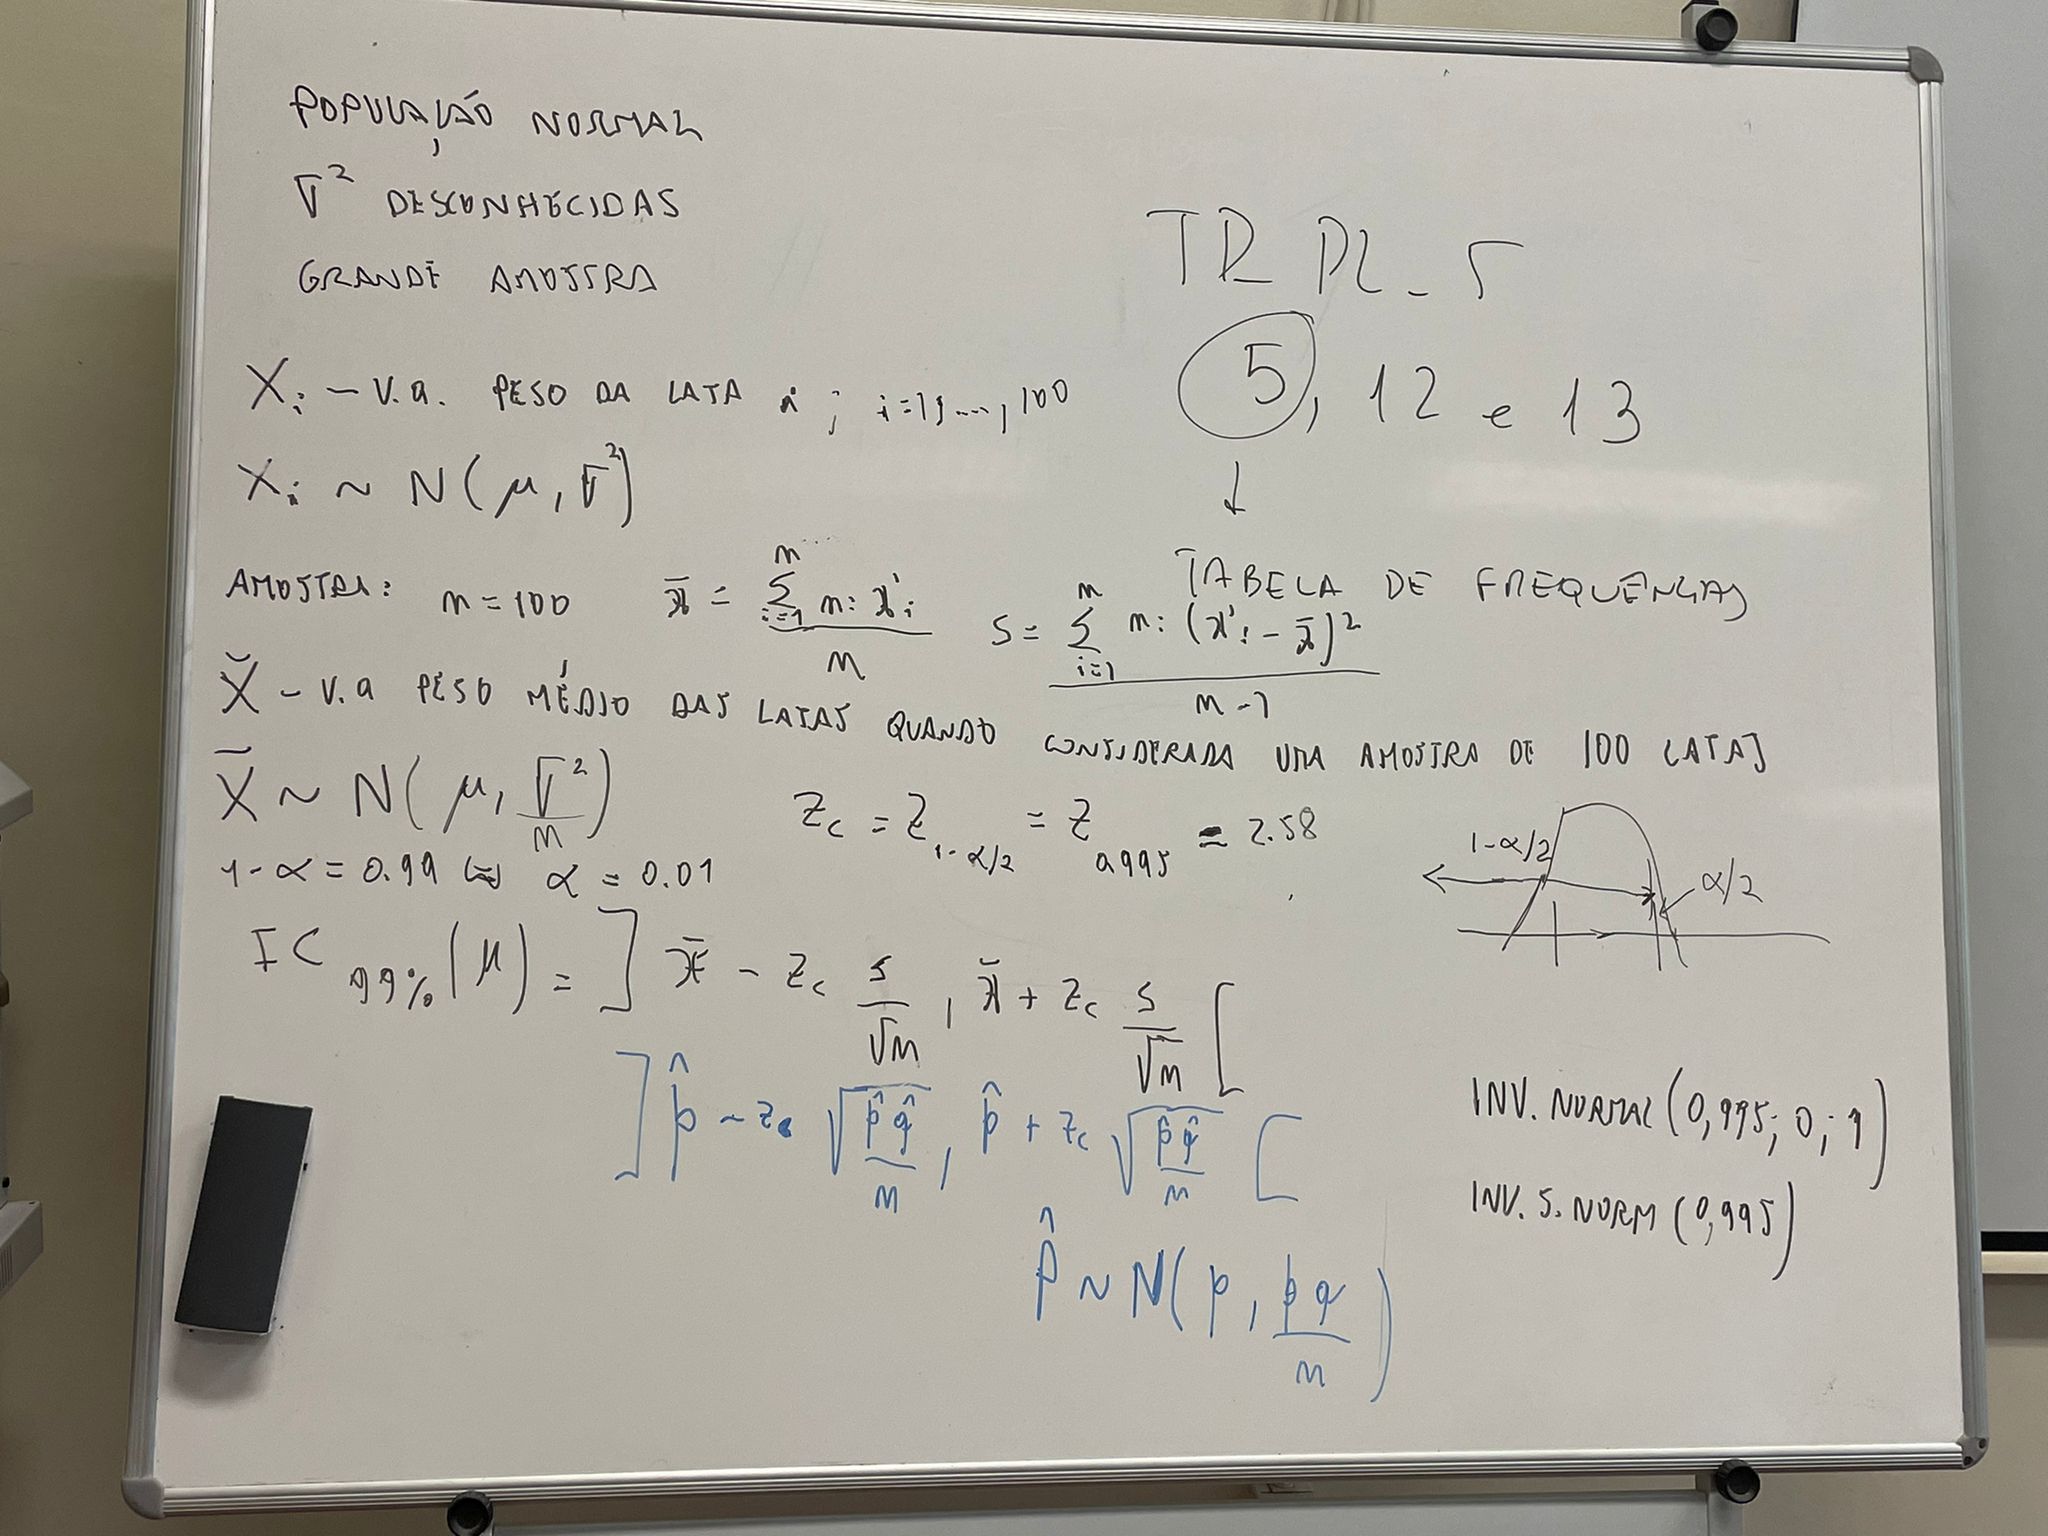 POPULAÇÃO NORMAL
σ² DESCONHECIDAS
GRANDE AMOSTRA
TR PL - 5
5, 12 e 13
↓
TABELA DE FREQUÊNCIAS
Xi – v.a. PESO DA LATA i ; i=1,...,100
Xi ~ N(μ, σ²)
AMOSTRA: n = 100 x̄ = Σ_{i=1}^{n} ni x'i / n s = Σ_{i=1}^{n} ni (x'i - x̄)² / n-1
X̄ – v.a PESO MÉDIO DAS LATAS QUANDO CONSIDERADA UMA AMOSTRA DE 100 LATAS
X̄ ~ N(μ, σ²/n)
Zc = Z1-α/2 = Z0.995 = 2.58
1-α/2 α/2
1-α = 0.99 ⇔ α = 0.01
IC 99% (μ) = ] x̄ - zc s/√n , x̄ + zc s/√n [
] p̂ - zc √(p̂q̂/n) , p̂ + zc √(p̂q̂/n) [
P̂ ~ N(p, pq/n)
INV. NORMAL (0,995; 0; 1)
INV. S. NORM (0,995)